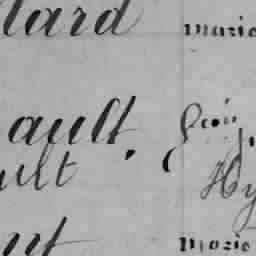 tard
Marie
ault,
ult
Hy
nt
Marie